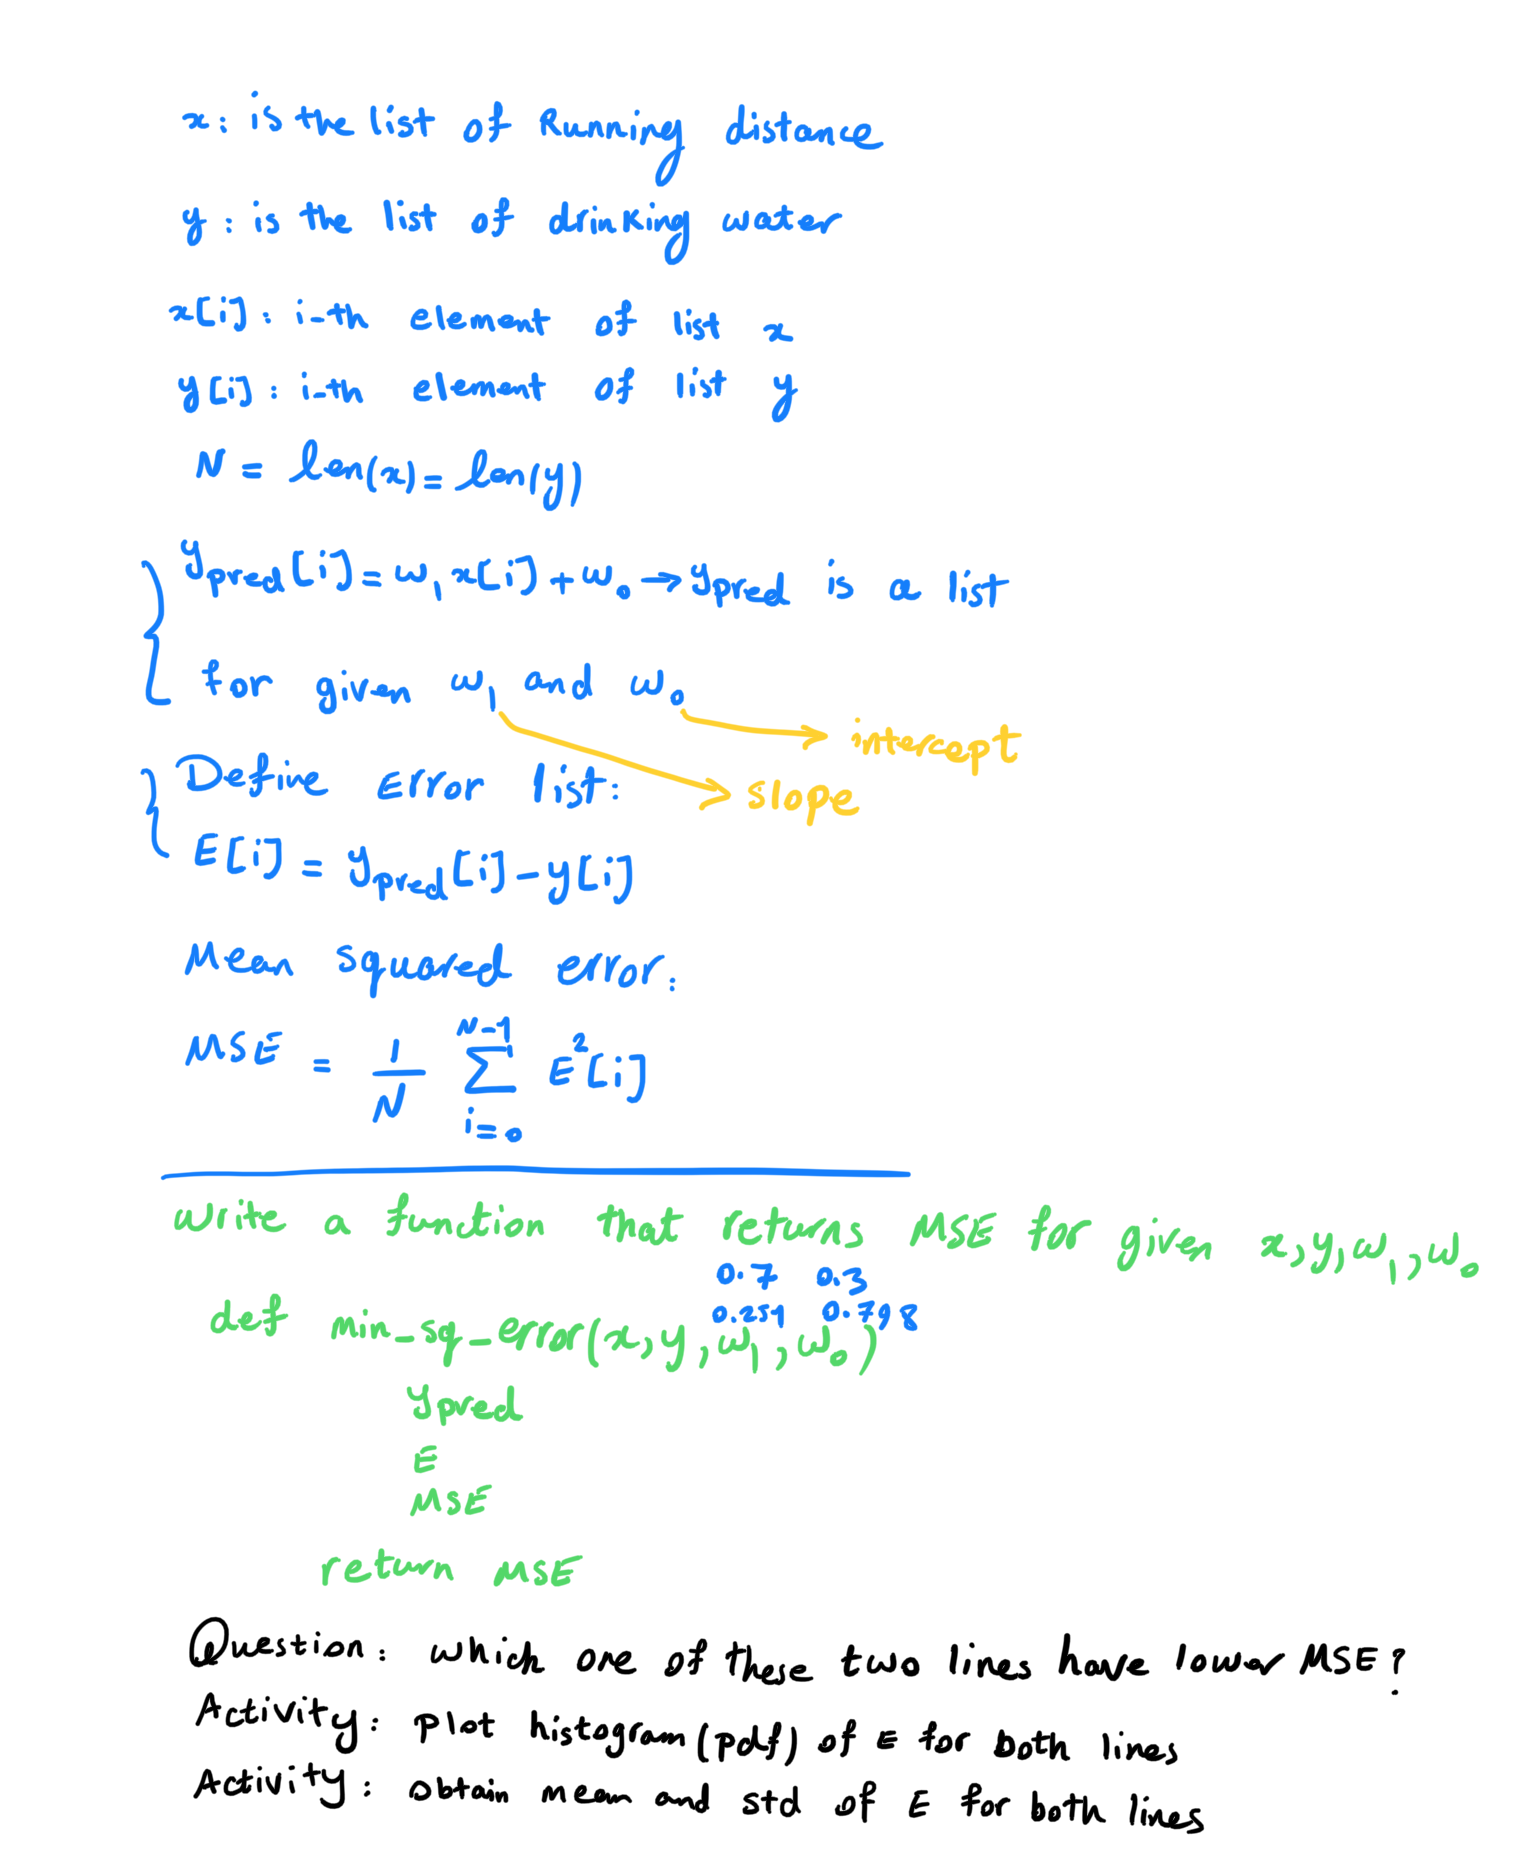 x: is the list of Running distance
y: is the list of drinking water
x[i]: i-th element of list x
y[i]: i-th element of list y
N = len(x) = len(y)
y_pred[i] = w₁ x[i] + w₀ → y_pred is a list
for given w₁ and w₀
intercept
slope
Define Error list:
E[i] = y_pred[i] - y[i]
Mean squared error:
MSE = 1/N ∑_{i=0}^{N-1} E²[i]
write a function that returns MSE for given x, y, w₁, w₀
0.7 0.3
0.259 0.798
def min_sq_error(x, y, w₁, w₀)
y_pred
E
MSE
return MSE
Question: which one of these two lines have lower MSE?
Activity: plot histogram (pdf) of E for both lines
Activity: obtain mean and std of E for both lines